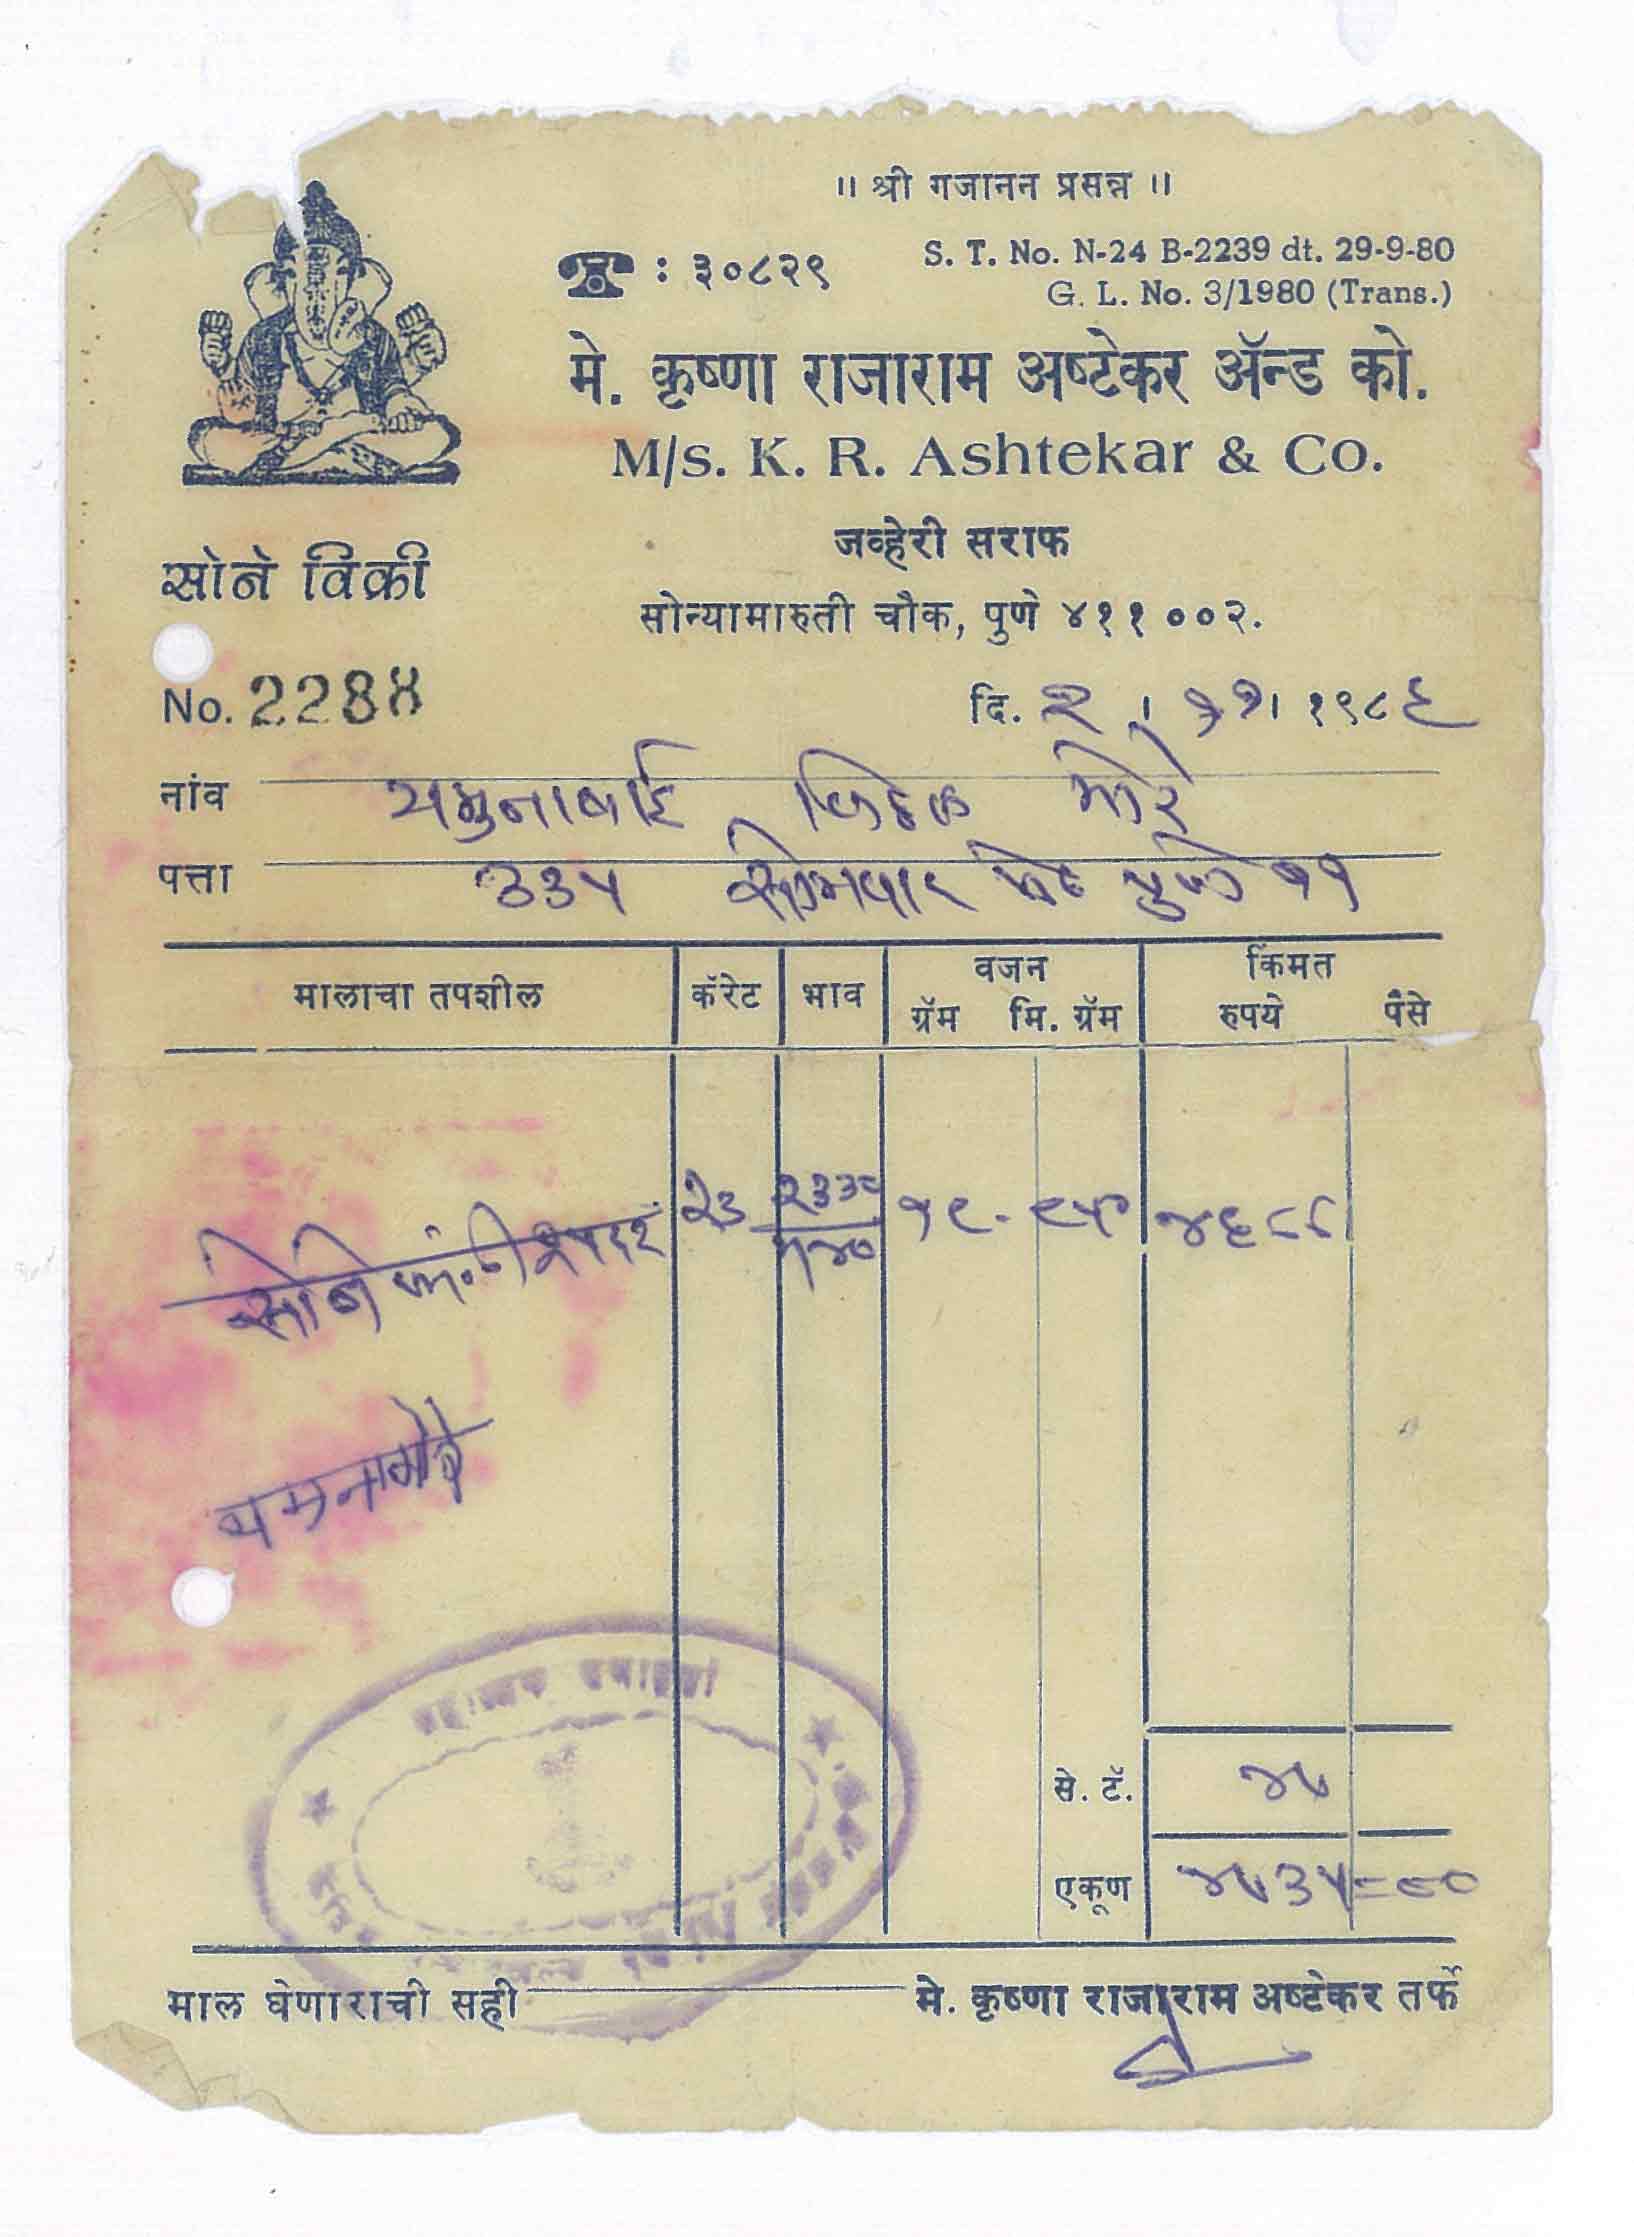 ॥ श्री गजानन प्रसन्न ॥
S. T. No. N-24 B-2239 dt. 29-9-80
: ३०८२९
G. L. No. 3/1980 (Trans.)
मे. कृष्णा राजाराम अष्टेकर ॲन्ड को.
M/s. K. R. Ashtekar & Co.
जव्हेरी सराफ
सोने विक्री
सोन्यामारुती चौक, पुणे ४११००२.
No. 2284
दि. २ । ११। १९८६
नांव यमुनाबाई विठ्ठल मोरे
पत्ता ३३५ सोमवार पेठ पुणे ११
मालाचा तपशील कॅरेट भाव वजन किंमत
ग्रॅम मि. ग्रॅम रुपये पैसे
सोने २३ २३३० १९.९५० ४६८८
१४०
यमुना मोरे
से. टॅ. ४७
एकूण ४७३५=००
माल घेणाराची सही मे. कृष्णा राजाराम अष्टेकर तर्फे